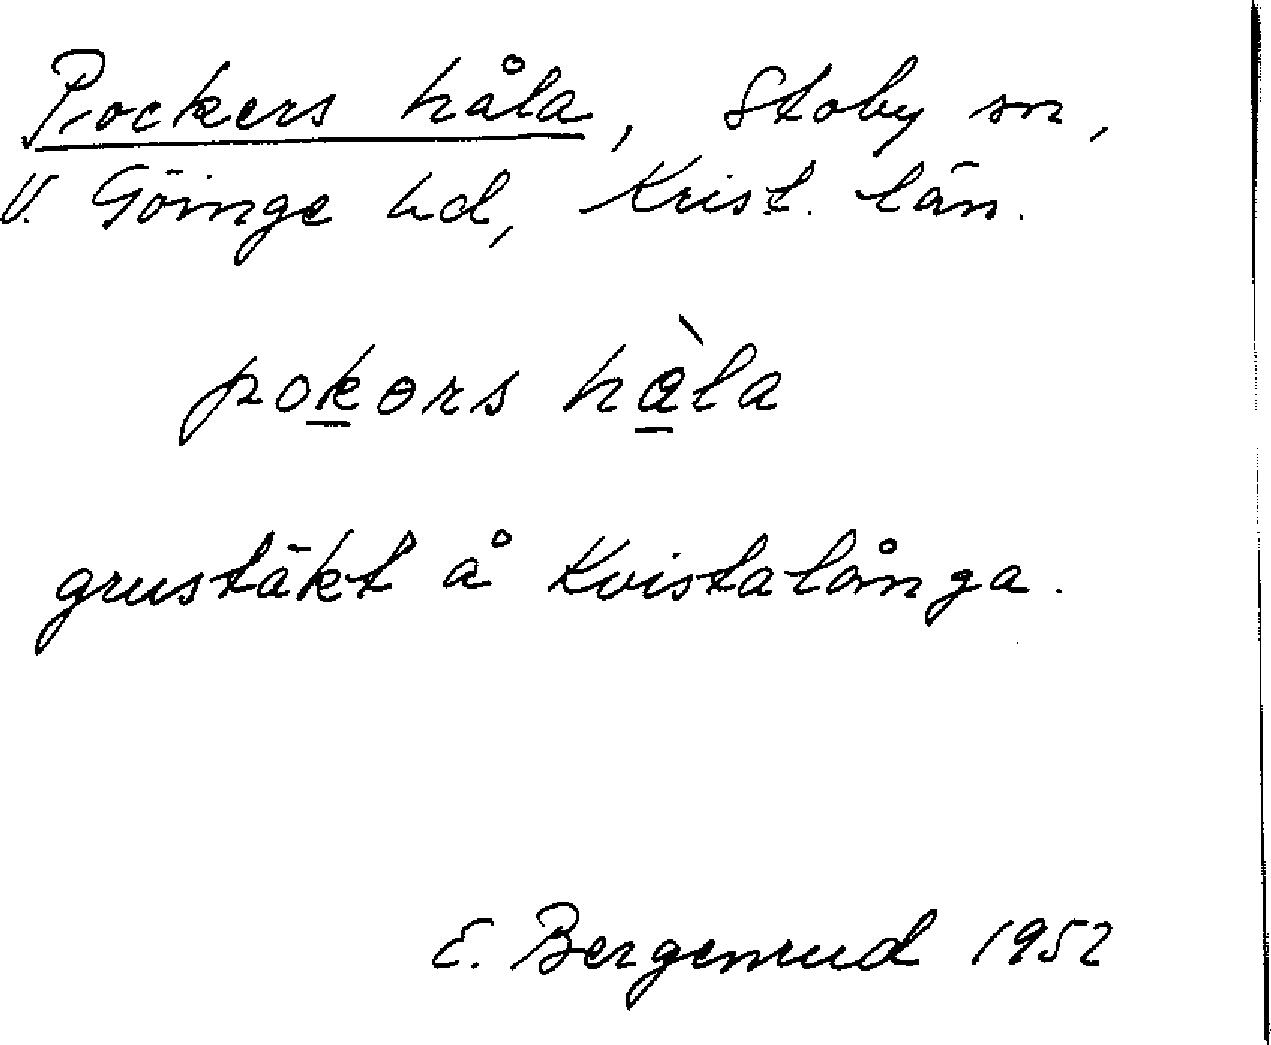 Pockers håla, Stoby sn,
V. Göinge hd, Krist. län.
pokərs hàla
grustäkt å Kvistalånga.
E. Bergenrud 1952